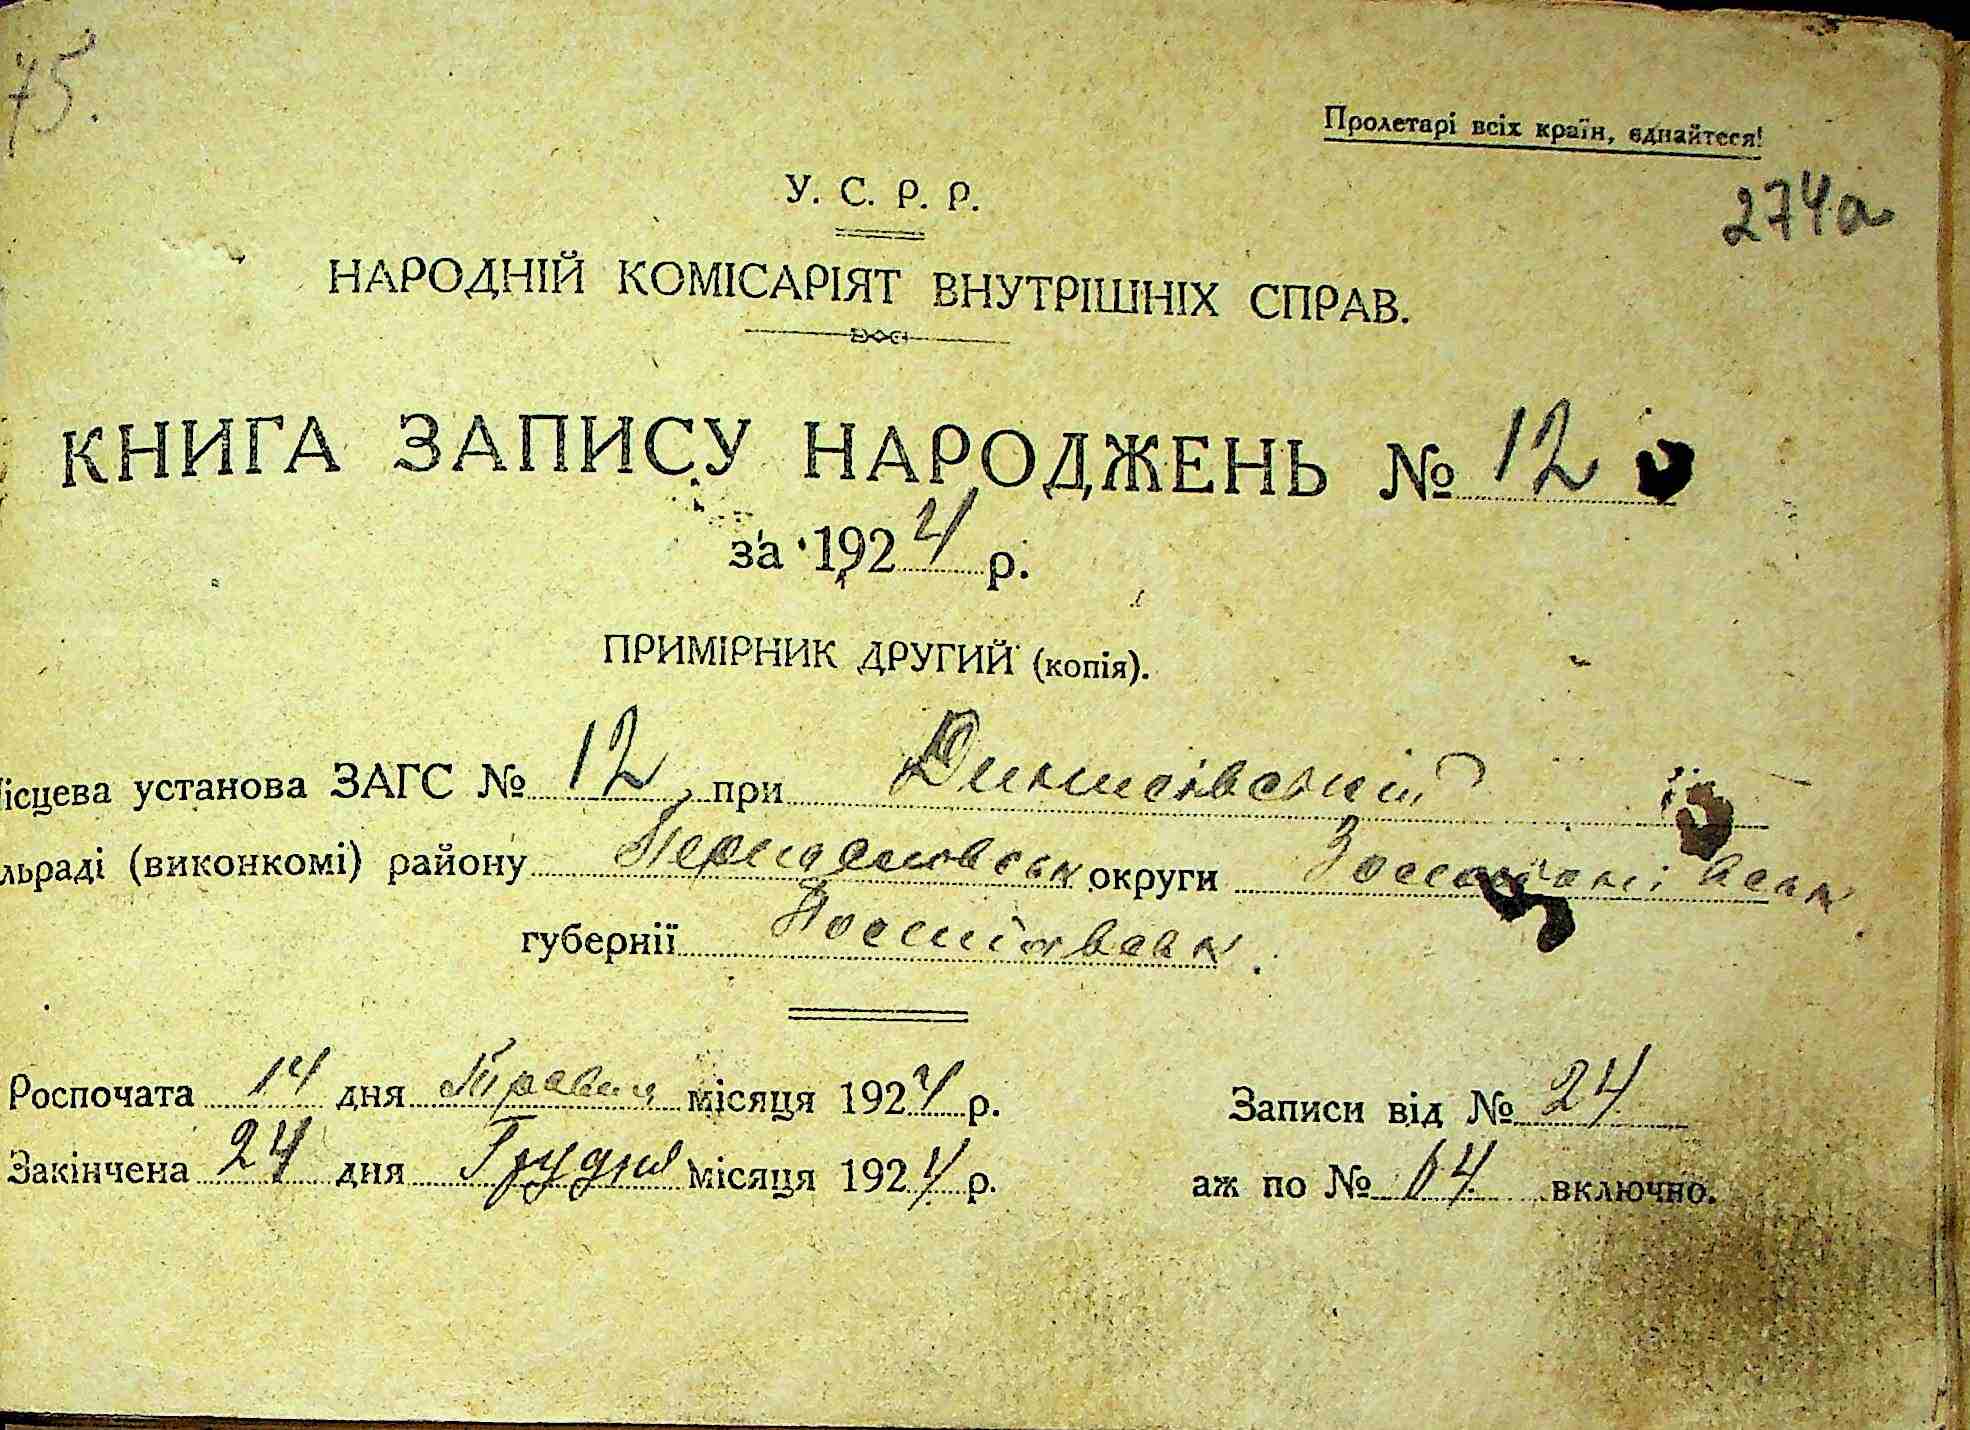 75.
Пролетарі всіх країн, єднайтеся!
274а
У. С. Р. Р.
НАРОДНІЙ КОМІСАРІЯТ ВНУТРІШНІХ СПРАВ.
КНИГА ЗАПИСУ НАРОДЖЕНЬ № 12
за 1924 р.
ПРИМІРНИК ДРУГИЙ (копія).
ісцева установа ЗАГС № 12 при
льраді (виконкомі) району округи
губернії Полтавськ
Роспочата 14 дня Травня місяця 1924 р.
Закінчена 24 дня Грудня місяця 1924 р.
Записи від № 24
аж по № 64 включно.